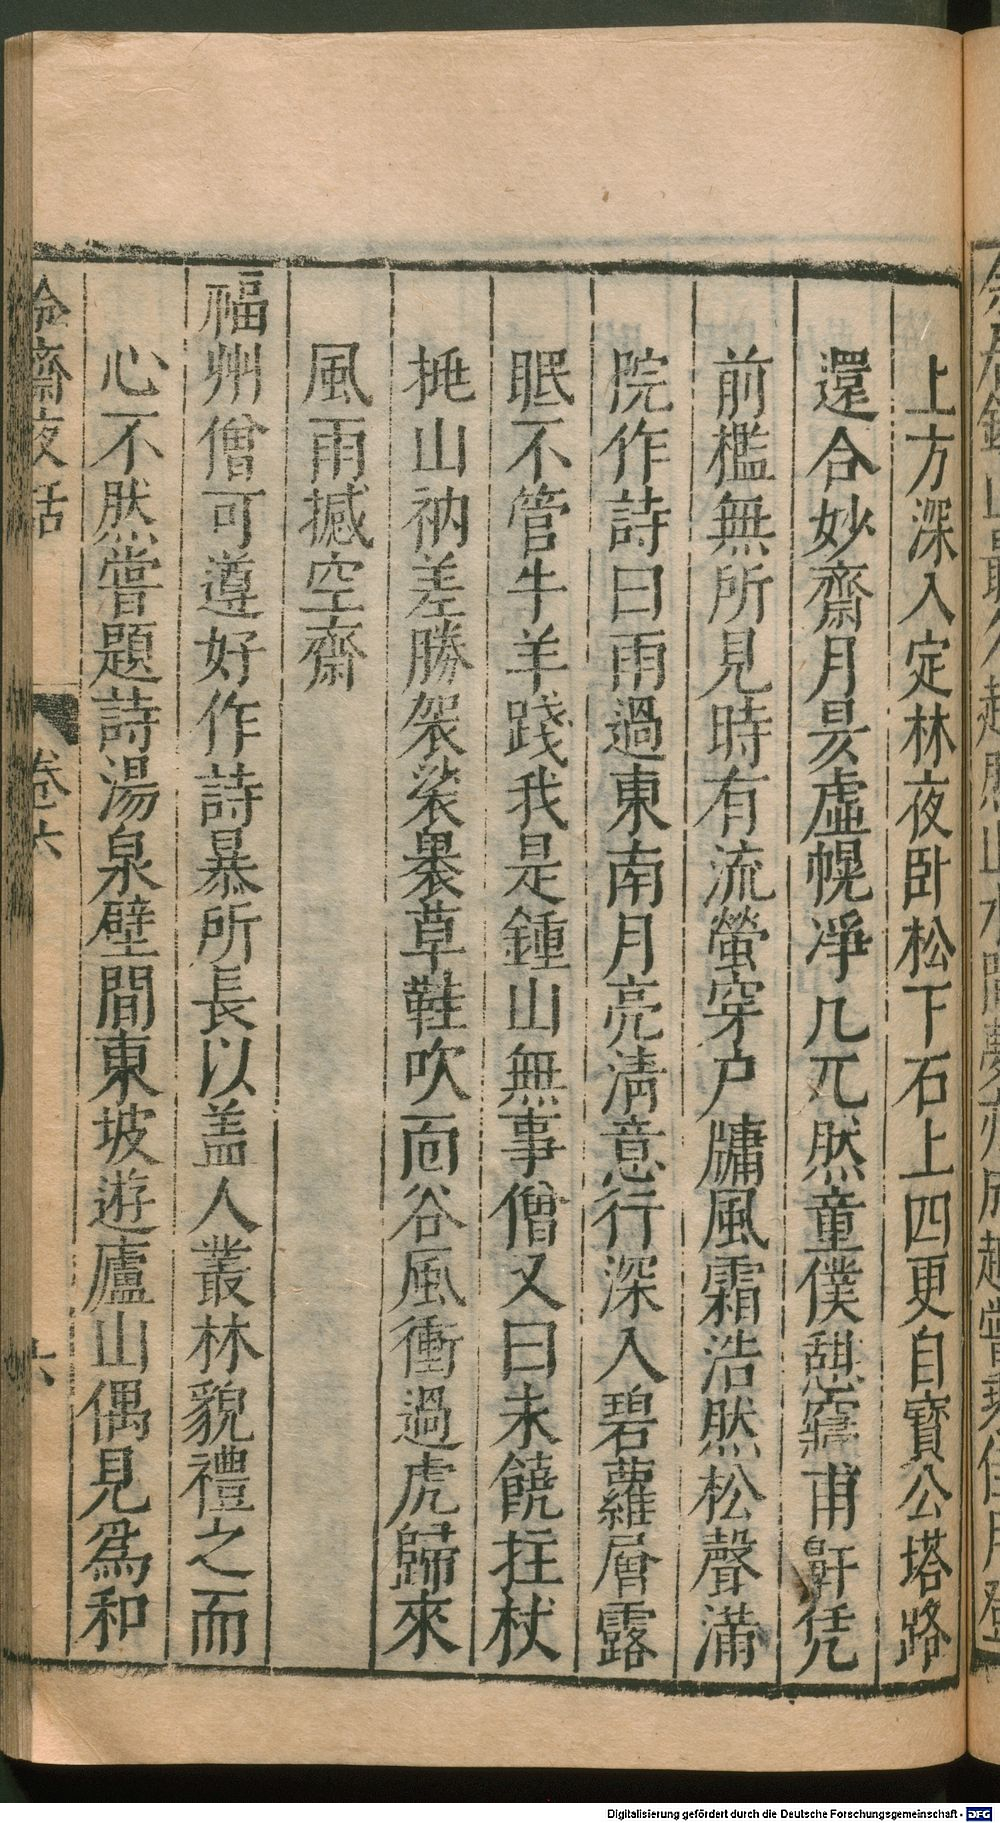 上方深入定林夜卧松下石上四更自寶公塔路
還合妙齋月昃虛幌凈几兀然童僕憇窹甫鼾凭
前檻無所見時有流螢穿户牗風霜浩然松聲滿
院作詩曰雨過東南月亮清意行深入碧蘿層露
眠不管牛羊踐我是鍾山無事僧又曰未饒拄杖
挑山衲差勝袈裟裹草鞋吹面谷風衝過虎歸來
風雨撼空齋
福州僧可遵好作詩暴所長以盖人叢林貌禮之而
心不然嘗題詩湯泉壁間東坡遊廬山偶見爲和
冷齋夜話
卷六
六
Digitalisierung gefördert durch die Deutsche Forschungsgemeinschaft - DFG